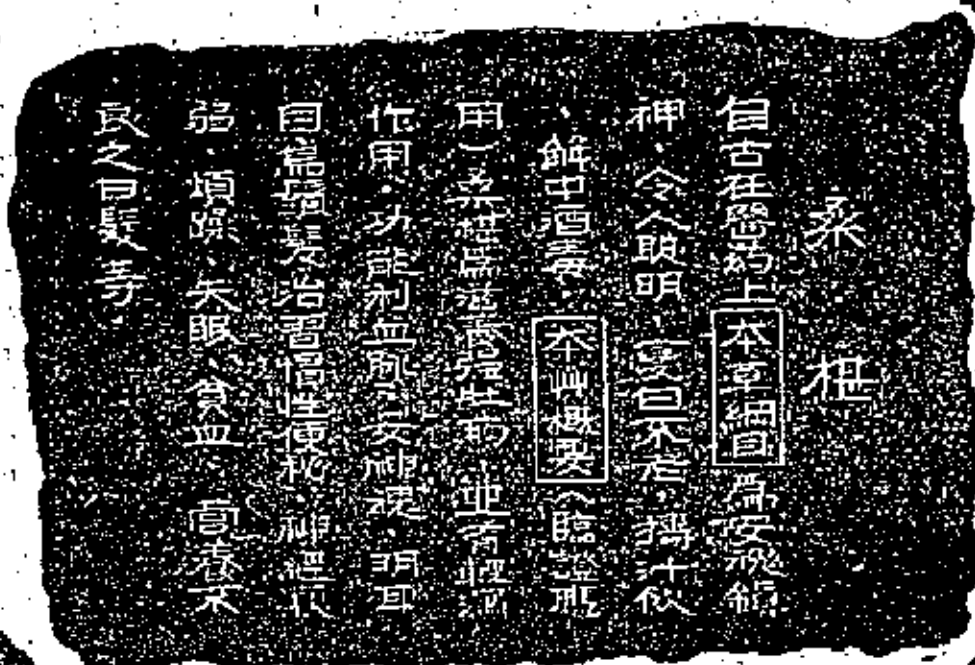 桑椹
自古在醫葯上本草綱目為安魂鎮
神、令人聰明、變白不老、搗汁飲
、解中酒毒。本艸概要（臨證應
用）桑椹為滋養強壯葯，並有輕瀉
作用。功能利血脈，安神魂，明耳
目烏鬚髮治習慣性便秘、神經衰
弱、煩躁、失眠、貧血、營養不
良之白髮等。